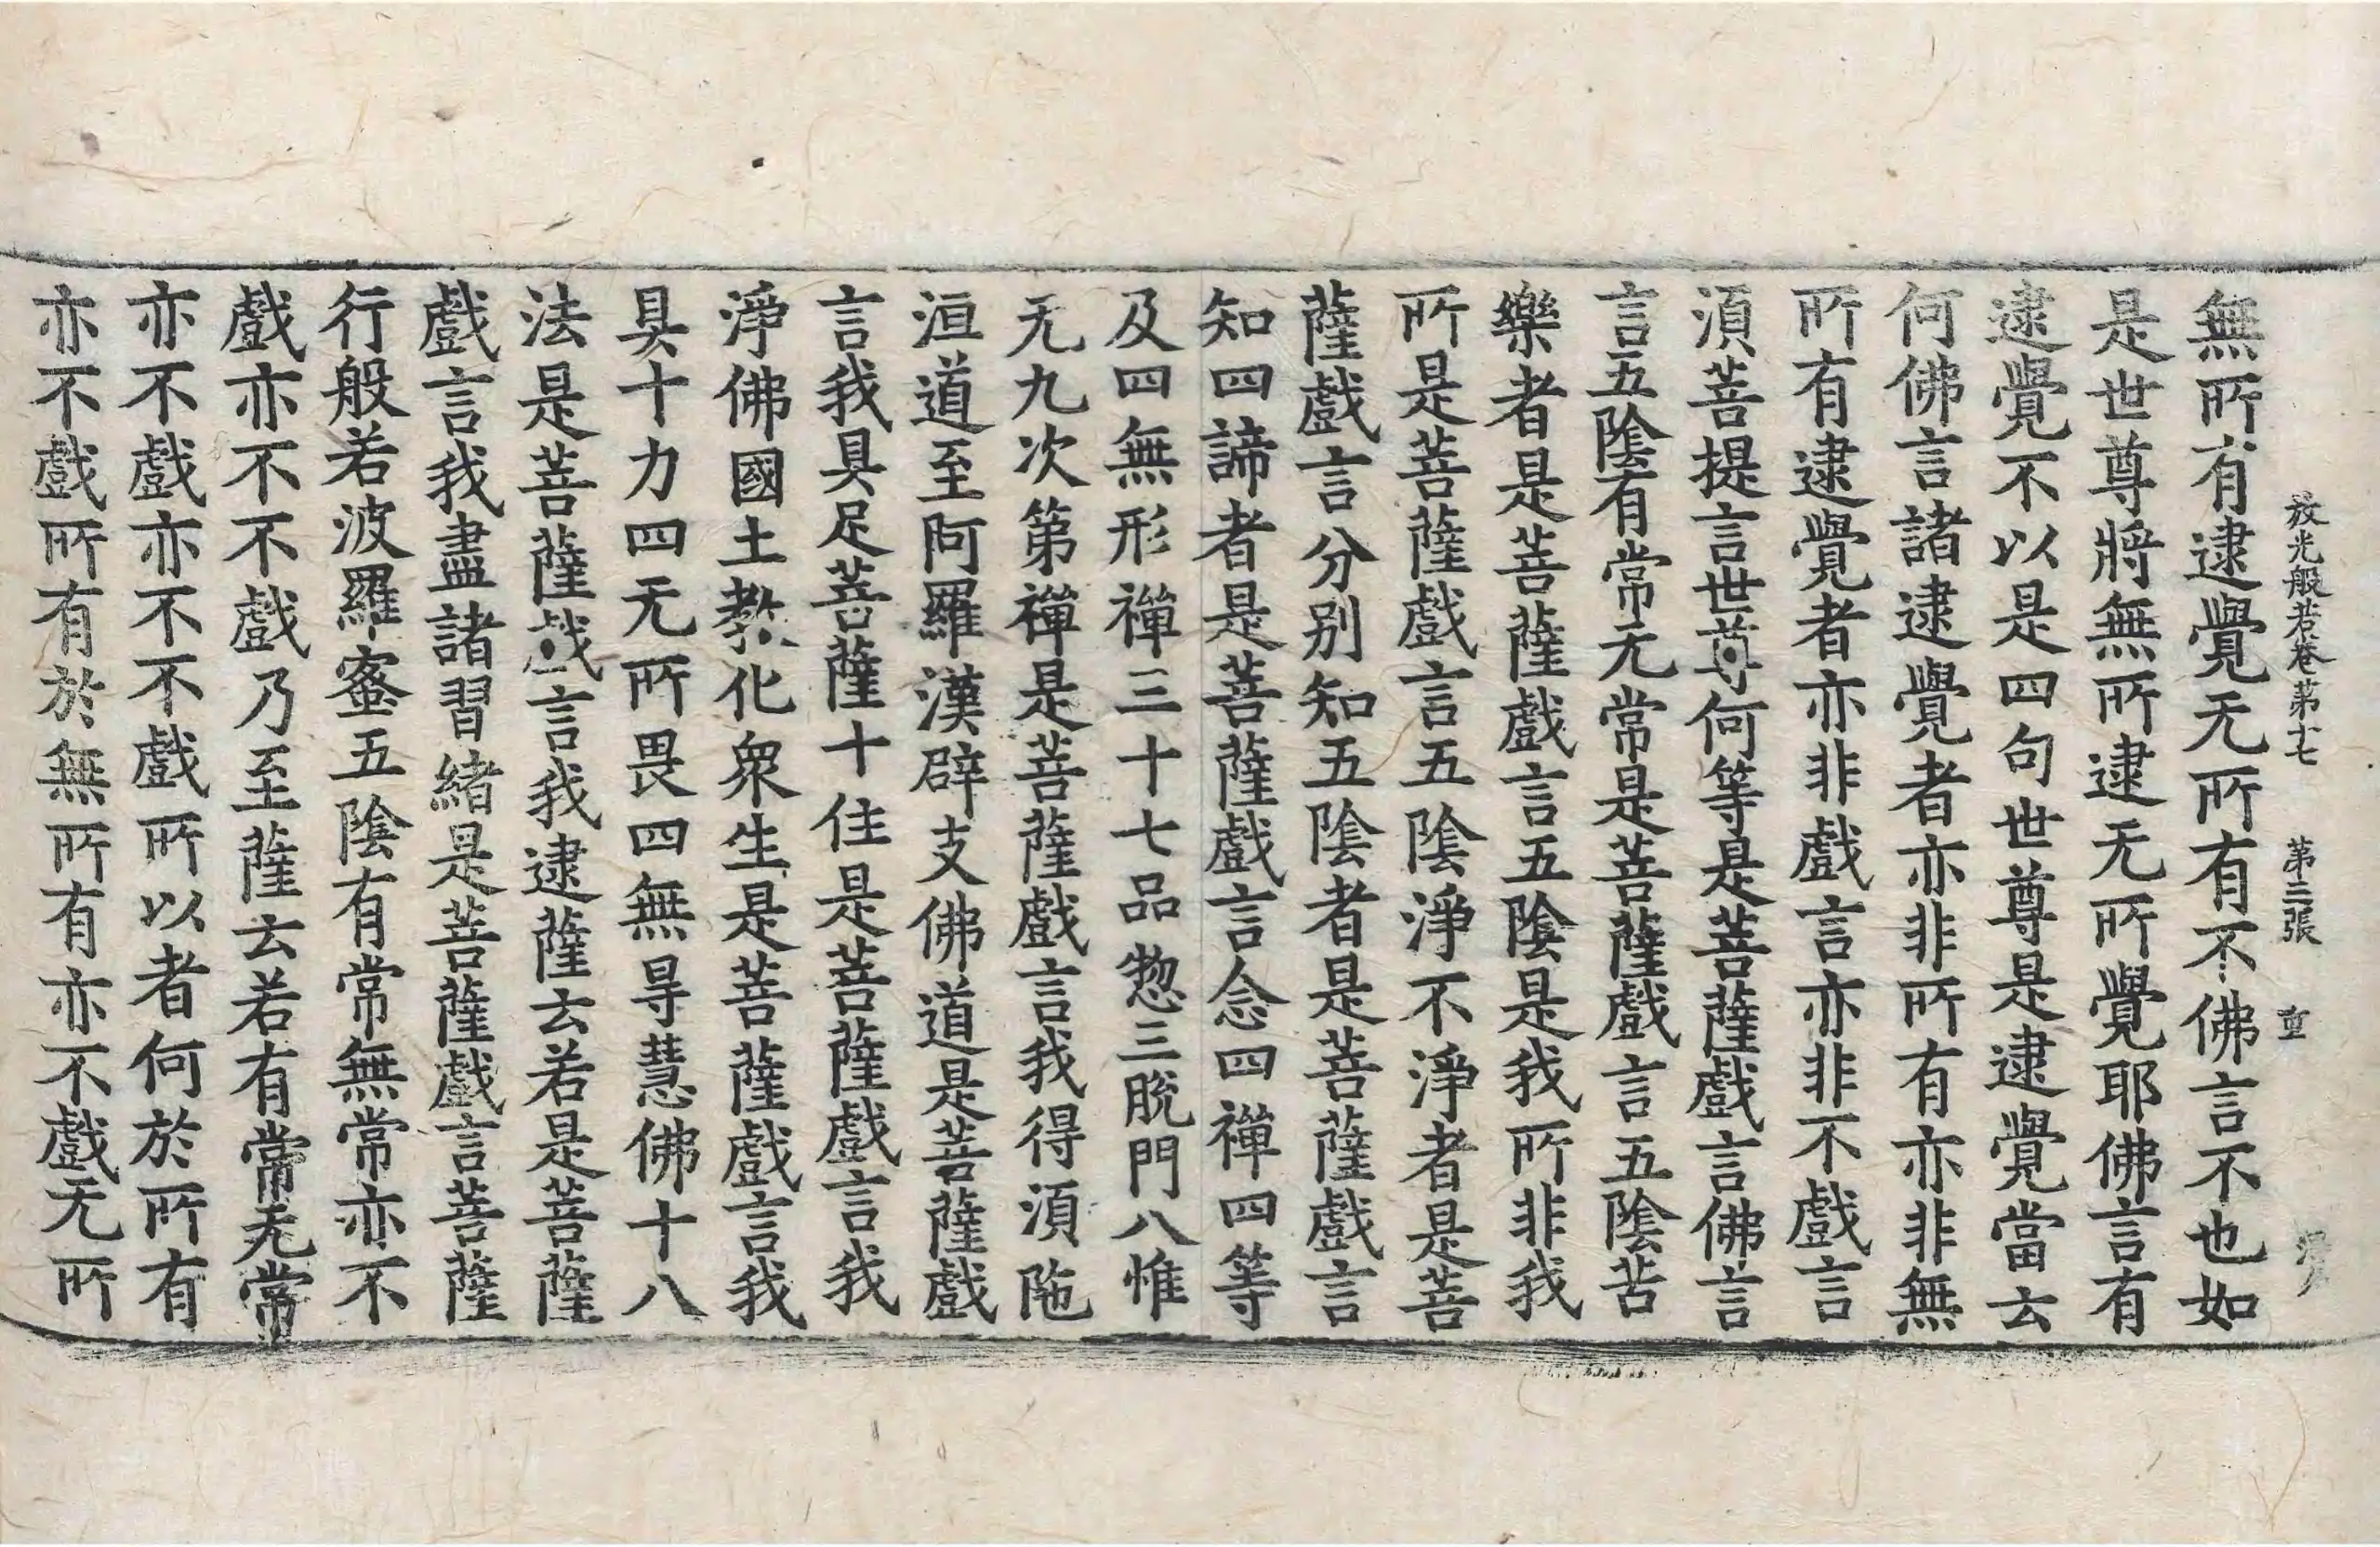 放光般若卷第十七 第三張 重
無所有逮覺无所有不佛言不也如
是世尊將無所逮无所覺耶佛言有
逮覺不以是四句世尊是逮覺當云
何佛言諸逮覺者亦非所有亦非無
所有逮覺者亦非戲言亦非不戲言
須菩提言世尊何等是菩薩戲言佛言
言五陰有常无常是菩薩戲言五陰苦
樂者是菩薩戲言五陰是我所非我
所是菩薩戲言五陰淨不淨者是菩
薩戲言分別知五陰者是菩薩戲言
知四諦者是菩薩戲言念四禪四等
及四無形禪三十七品惣三脫門八惟
无九次第禪是菩薩戲言我得須陁
洹道至阿羅漢辟支佛道是菩薩戲
言我具足菩薩十住是菩薩戲言我
淨佛國土教化衆生是菩薩戲言我
具十力四无所畏四無㝵慧佛十八
法是菩薩戲言我逮薩云若是菩薩
戲言我盡諸習緒是菩薩戲言菩薩
行般若波羅蜜五陰有常無常亦不
戲亦不不戲乃至薩云若有常无常
亦不戲亦不不戲所以者何於所有
亦不戲所有於無所有亦不戲无所